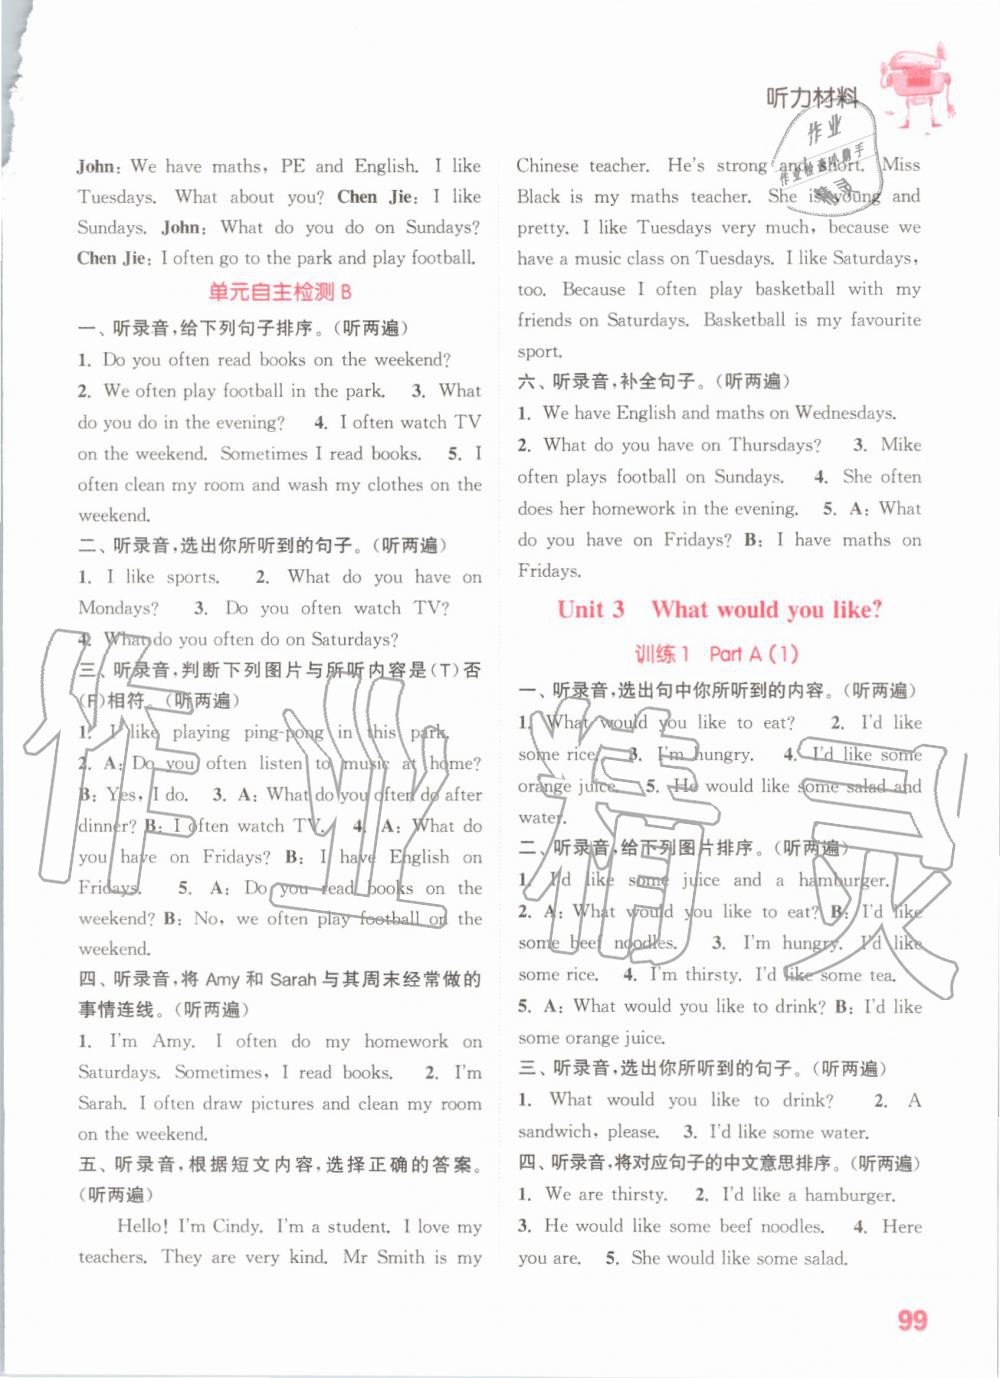 听力材料
John: We have maths, PE and English. I like
Tuesdays. What about you? Chen Jie: I like
Sundays. John: What do you do on Sundays?
Chen Jie: I often go to the park and play football.
单元自主检测 B
一、听录音,给下列句子排序。(听两遍)
1. Do you often read books on the weekend?
2. We often play football in the park. 3. What
do you do in the evening? 4. I often watch TV
on the weekend. Sometimes I read books. 5. I
often clean my room and wash my clothes on the
weekend.
二、听录音,选出你所听到的句子。(听两遍)
1. I like sports. 2. What do you have on
Mondays? 3. Do you often watch TV?
4. What do you often do on Saturdays?
三、听录音,判断下列图片与所听内容是(T)否
(F)相符。(听两遍)
1. I like playing ping-pong in this park.
2. A: Do you often listen to music at home?
B: Yes, I do. 3. A: What do you often do after
dinner? B: I often watch TV. 4. A: What do
you have on Fridays? B: I have English on
Fridays. 5. A: Do you read books on the
weekend? B: No, we often play football on the
weekend.
四、听录音,将 Amy 和 Sarah 与其周末经常做的
事情连线。(听两遍)
1. I'm Amy. I often do my homework on
Saturdays. Sometimes, I read books. 2. I'm
Sarah. I often draw pictures and clean my room
on the weekend.
五、听录音,根据短文内容,选择正确的答案。
(听两遍)
Hello! I'm Cindy. I'm a student. I love my
teachers. They are very kind. Mr Smith is my
Chinese teacher. He's strong and short. Miss
Black is my maths teacher. She is young and
pretty. I like Tuesdays very much, because we
have a music class on Tuesdays. I like Saturdays,
too. Because I often play basketball with my
friends on Saturdays. Basketball is my favourite
sport.
六、听录音,补全句子。(听两遍)
1. We have English and maths on Wednesdays.
2. What do you have on Thursdays? 3. Mike
often plays football on Sundays. 4. She often
does her homework in the evening. 5. A: What
do you have on Fridays? B: I have maths on
Fridays.
Unit 3 What would you like?
训练 1 Part A (1)
一、听录音,选出句中你所听到的内容。(听两遍)
1. What would you like to eat? 2. I'd like
some rice. 3. I'm hungry. 4. I'd like some
orange juice. 5. He would like some salad and
water.
二、听录音,给下列图片排序。(听两遍)
1. I'd like some juice and a hamburger.
2. A: What would you like to eat? B: I'd like
some beef noodles. 3. I'm hungry. I'd like
some rice. 4. I'm thirsty. I'd like some tea.
5. A: What would you like to drink? B: I'd like
some orange juice.
三、听录音,选出你所听到的句子。(听两遍)
1. What would you like to drink? 2. A
sandwich, please. 3. I'd like some water.
四、听录音,将对应句子的中文意思排序。(听两遍)
1. We are thirsty. 2. I'd like a hamburger.
3. He would like some beef noodles. 4. Here
you are. 5. She would like some salad.
99
作业
作业检查小助手
精灵
作业精灵